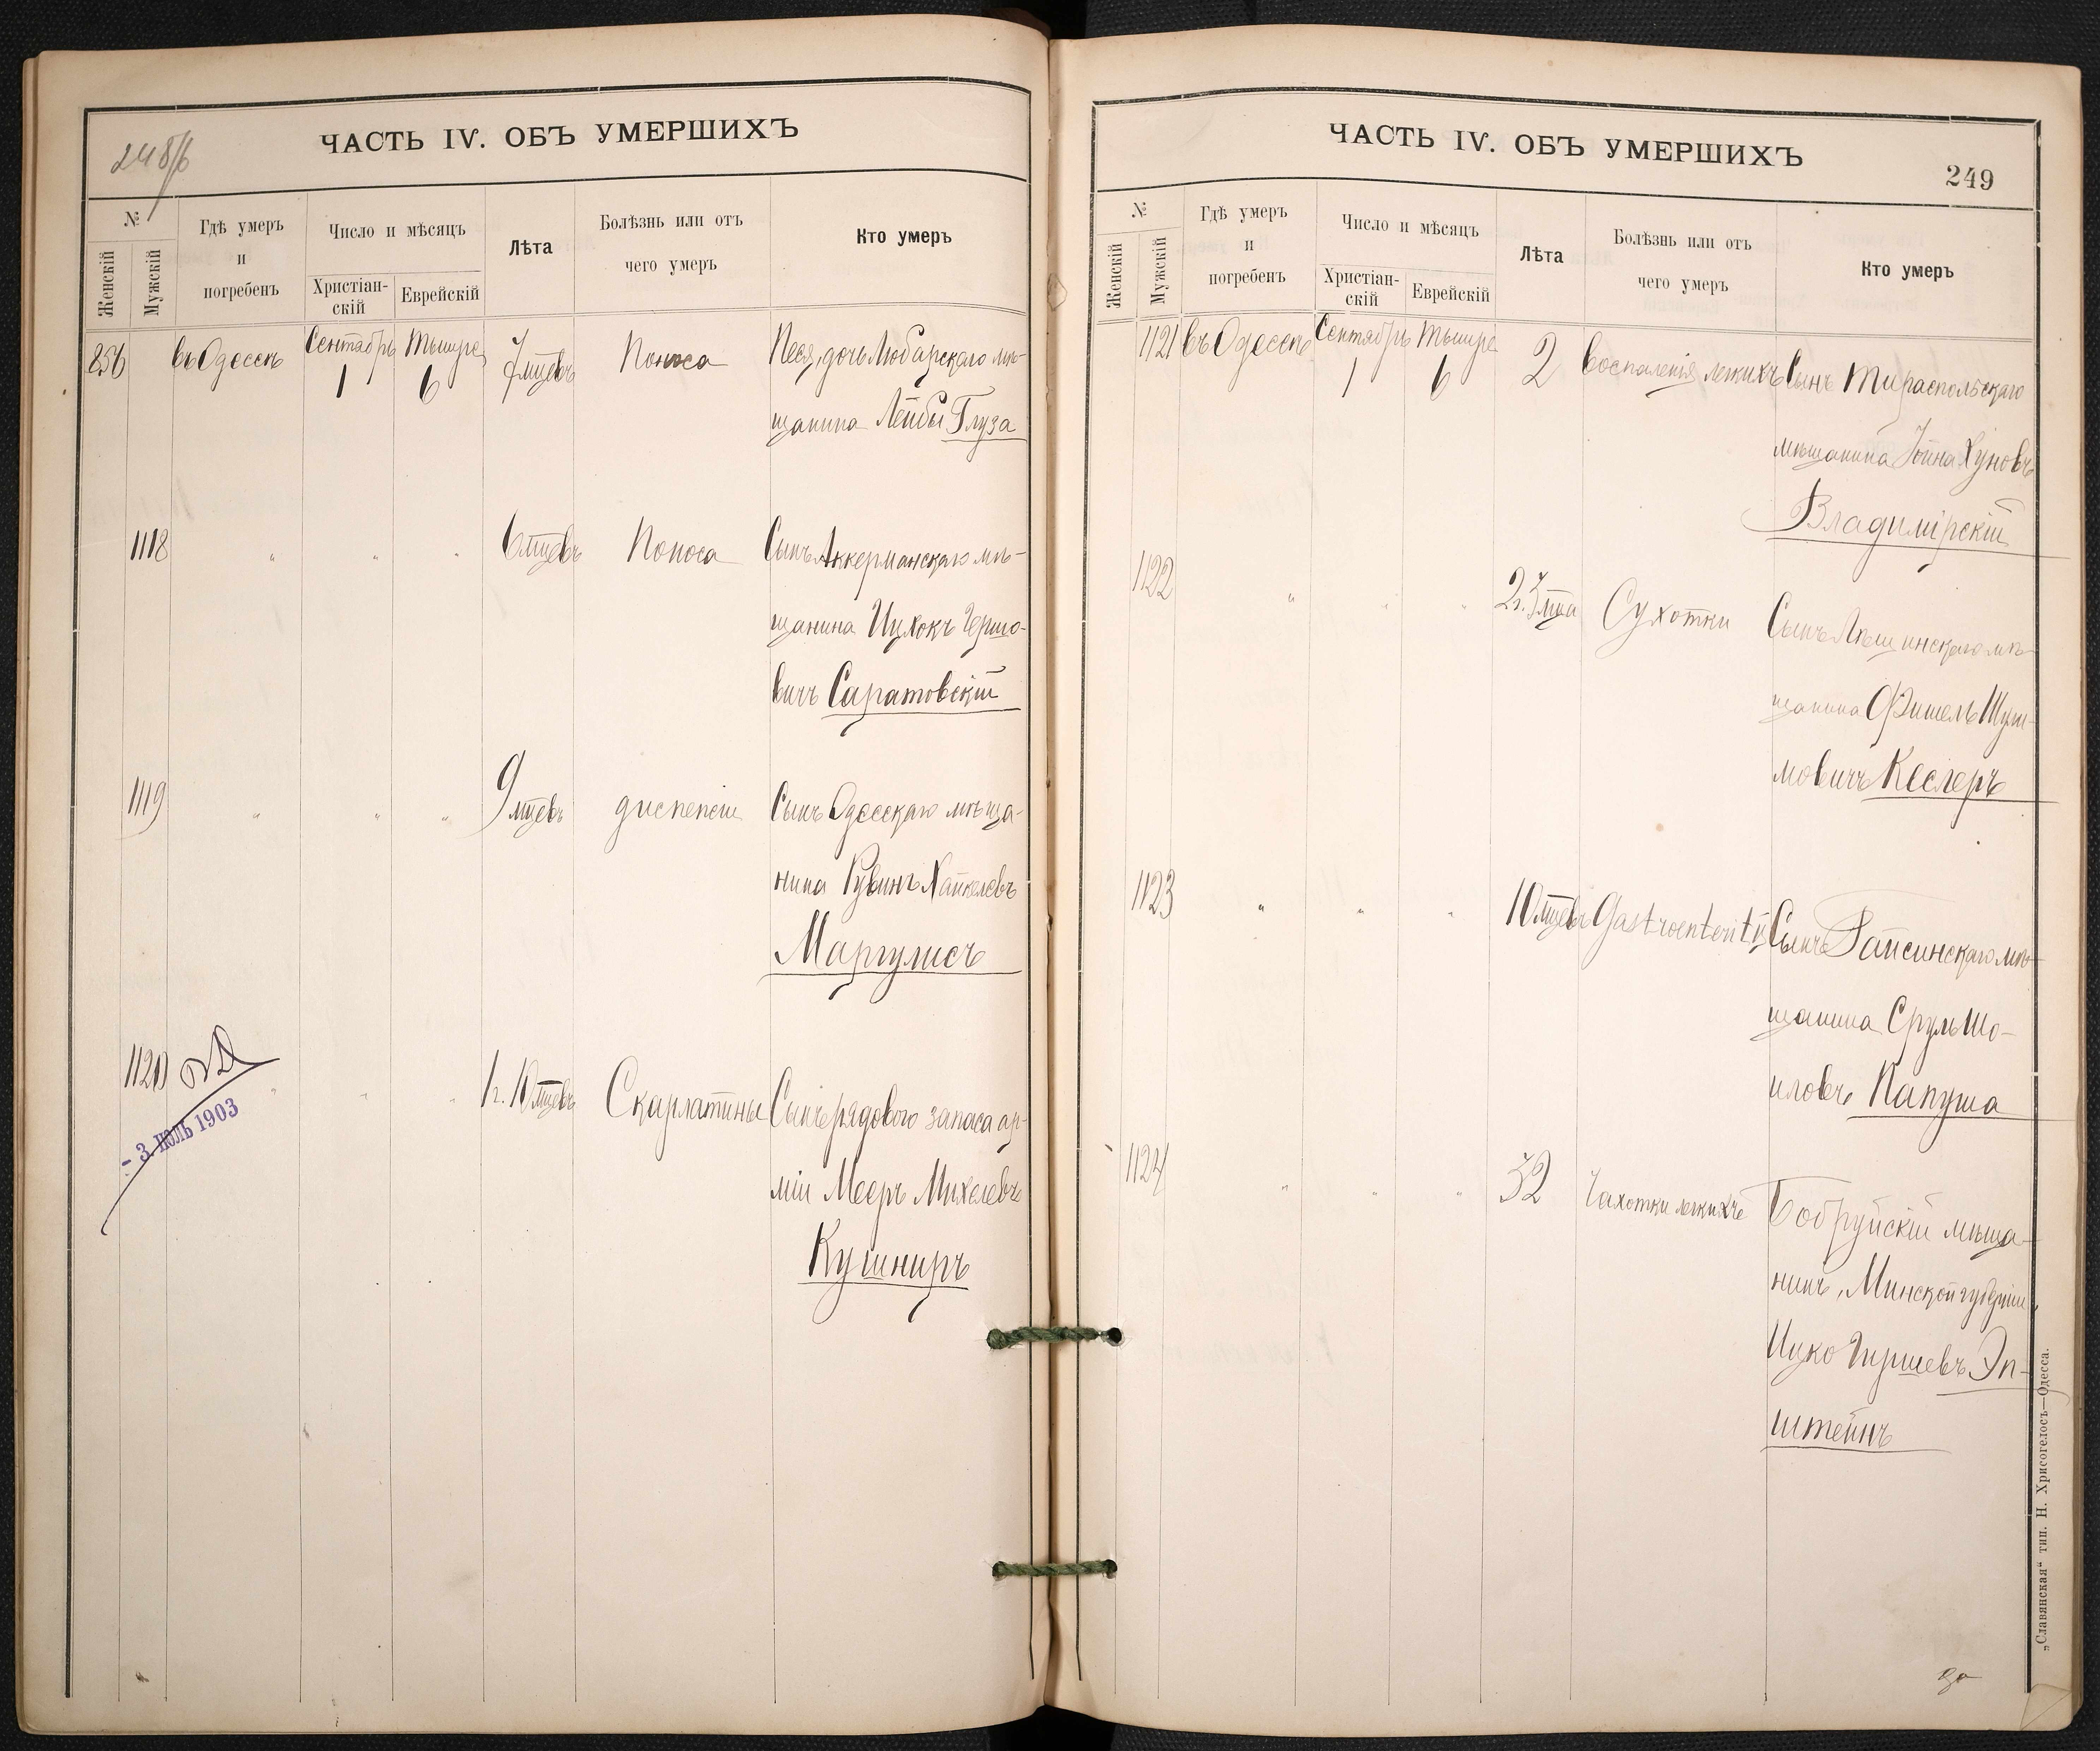 248/б
ЧАСТЬ IV. ОБЪ УМЕРШИХЪ
№
Женскій
Мужскій
Гдѣ умеръ
и
погребенъ
Число и мѣсяцъ
Христіан-
скій
Еврейскій
Лѣта
Болѣзнь или отъ
чего умеръ
Кто умеръ
856 въ Одессѣ Сентябрь 1 Тышре 6 7 мцевъ Поноса Песя, дочь Любарскаго мѣ-
щанина Лейбы Глуза
1118 " " " 6 мцевъ Поноса Сынъ Аккерманскаго мѣ-
щанина Ицхокъ Гершо-
вичъ Саратовскій
1119 " " " 9 мцевъ диспепсіи Сынъ Одесскаго мѣща-
нина Рувинъ Хаикелевъ
Маргулисъ
1120 " " " 1 г. 10 мцевъ Скарлатины Сынъ рядового запаса ар-
міи Мееръ Михелевъ
Кушниръ
- 3. ІЮЛЬ 1903
ЧАСТЬ IV. ОБЪ УМЕРШИХЪ
249
№
Женскій
Мужскій
Гдѣ умеръ
и
погребенъ
Число и мѣсяцъ
Христіан-
скій
Еврейскій
Лѣта
Болѣзнь или отъ
чего умеръ
Кто умеръ
1121 въ Одессѣ Сентябрь 1 Тышре 6 2 Воспаленія легкихъ Сынъ Тираспольскаго
мѣщанина Іойна Хуновъ
Владимірскій
1122 " " " 2 г. 3 мца Сухотки Сынъ мѣ-
щанина Фишель Шуи-
мовичъ Кеслеръ
1123 " " " 10 мцевъ Gastroenterit Сынъ Гайсинскаго мѣ-
щанина Сруль Шо-
иловъ Папуша
1124 " " " 32 Чахотки легкихъ Бобруйскій мѣща-
нинъ, Минской губерніи,
Ицко Гиршевъ Эп-
штейнъ
„Славянская“ тип. Н. Хрисогелосъ—Одесса.